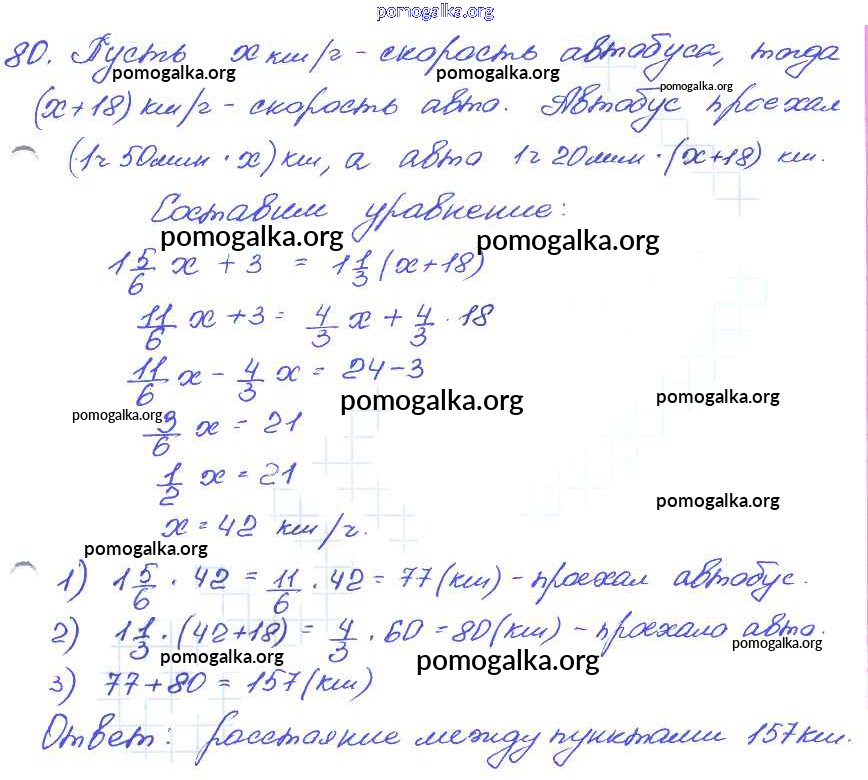 pomogalka.org
80. Пусть x км/ч - скорость автобуса, тогда
pomogalka.org pomogalka.org
pomogalka.org
(x+18) км/ч - скорость авто. Автобус проехал
(1ч 50мин · x) км, а авто 1ч 20мин · (x+18) км.
Составим уравнение:
pomogalka.org pomogalka.org
1 5/6 x + 3 = 1 1/3 (x+18)
11/6 x + 3 = 4/3 x + 4/3 · 18
11/6 x - 4/3 x = 24 - 3
pomogalka.org pomogalka.org
pomogalka.org
3/6 x = 21
1/2 x = 21
pomogalka.org
x = 42 км/ч.
pomogalka.org
1) 1 5/6 · 42 = 11/6 · 42 = 77 (км) - проехал автобус.
2) 1 1/3 · (42+18) = 4/3 · 60 = 80 (км) - проехало авто.
pomogalka.org pomogalka.org pomogalka.org
3) 77 + 80 = 157 (км)
Ответ: расстояние между пунктами 157км.